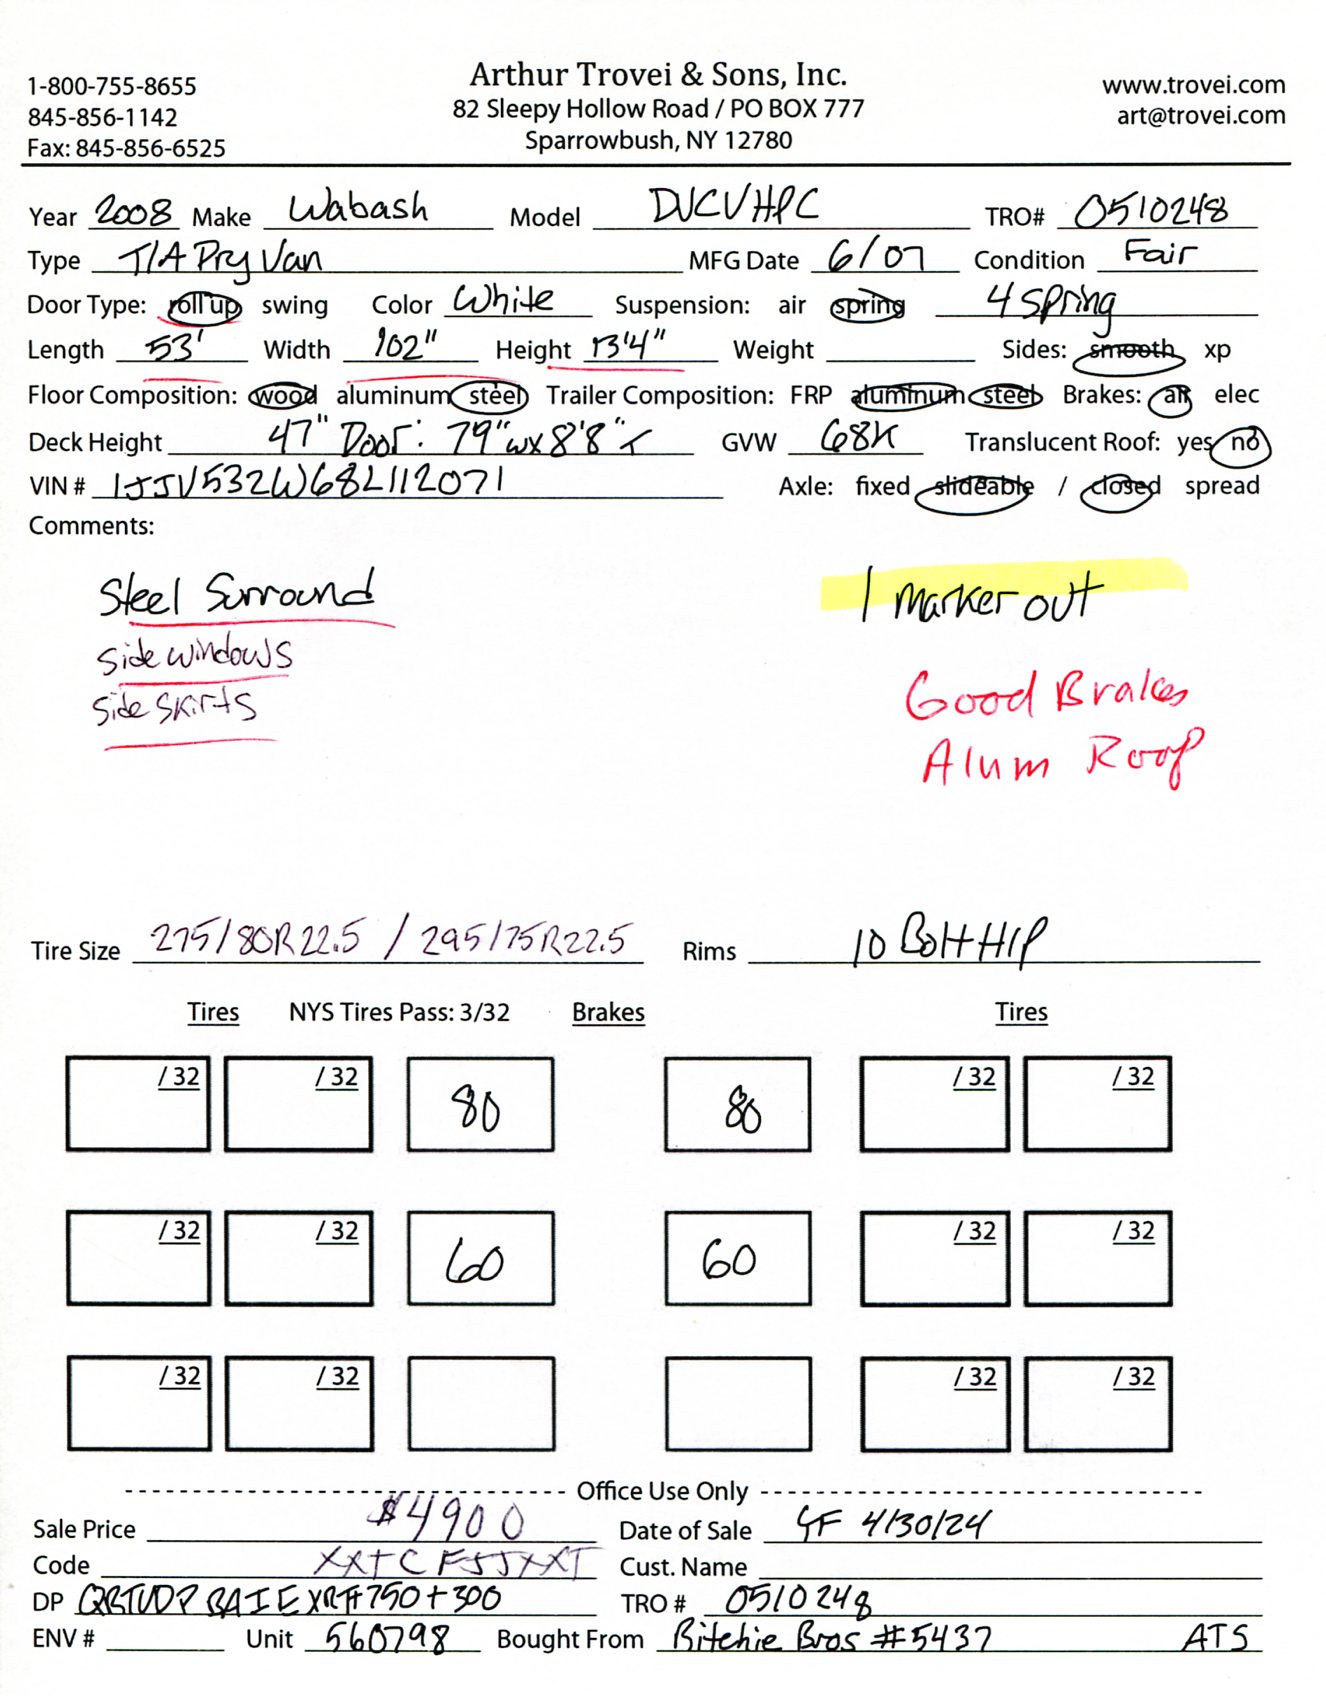 Arthur Trovei & Sons, Inc.
1-800-755-8655 82 Sleepy Hollow Road / PO BOX 777 www.trovei.com
845-856-1142 Sparrowbush, NY 12780 art@trovei.com
Fax: 845-856-6525
Year 2008 Make Wabash Model DVCVHPC TRO# 0510248
Type T/A Pry Van MFG Date 6/07 Condition Fair
Door Type: roll up swing Color White Suspension: air spring 4 spring
Length 53' Width 102" Height 13'4" Weight Sides: smooth xp
Floor Composition: wood aluminum steel Trailer Composition: FRP aluminum steel Brakes: air elec
Deck Height 47" Door: 79"w x 8'8"T GVW 68K Translucent Roof: yes no
VIN # 1JJV532W68L112071 Axle: fixed slideable / closed spread
Comments:
Steel Surround 1 marker out
side windows
side skirts
Good Brakes
Alum Roof
Tire Size 275/80R22.5 / 295/75R22.5 Rims 10 Bolt H/P
Tires NYS Tires Pass: 3/32 Brakes Tires
/ 32 / 32 80 80 / 32 / 32
/ 32 / 32 60 60 / 32 / 32
/ 32 / 32 / 32 / 32
Office Use Only
Sale Price $4900 Date of Sale GF 4/30/24
Code XXTCFJJXXT Cust. Name
DP 750+300 TRO # 0510248
ENV # Unit 560798 Bought From Ritchie Bros #5437 ATS